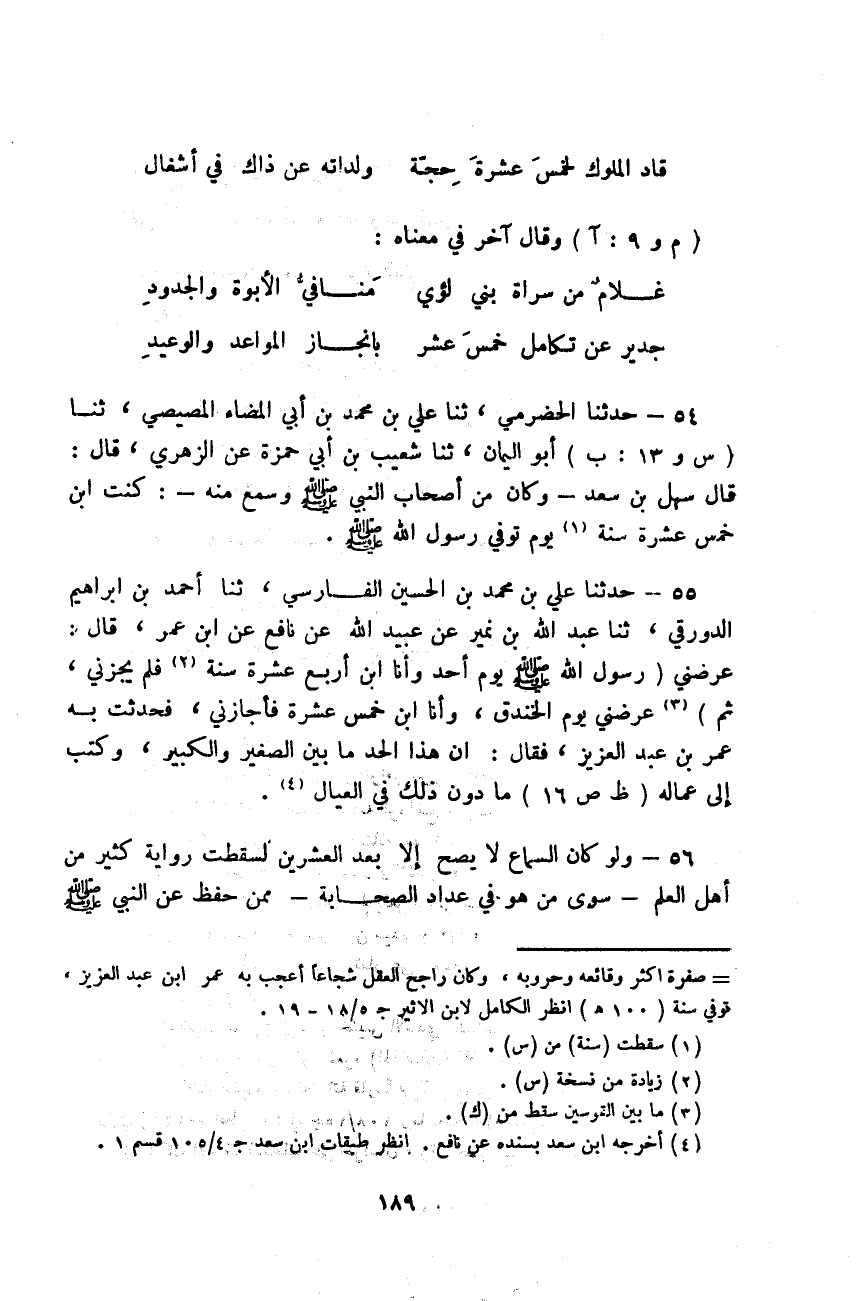 قاد الملوك لخمسَ عشرةَ حِجّة ولداته عن ذاك في أشغال
( م و ٩ : آ ) وقال آخر في معناه :
غـــلامٌ من سراة بني لؤي مَنـــافيُّ الأبوة والجدودِ
جدير عن تكامل خمسَ عشر بانجـــاز المواعد والوعيدِ
٥٤ – حدثنا الحضرمي ، ثنا علي بن محمد بن أبي المضاء المصيصي ، ثنــا
( س و ١٣ : ب ) أبو اليمان ، ثنا شعيب بن أبي حمزة عن الزهري ، قال :
قال سهل بن سعد – وكان من أصحاب النبي ﷺ وسمع منه – : كنت ابن
خمس عشرة سنة (١) يوم توفي رسول الله ﷺ .
٥٥ – حدثنا علي بن محمد بن الحسين الفـــارسي ، ثنا أحمد بن ابراهيم
الدورقي ، ثنا عبد الله بن نمير عن عبيد الله عن نافع عن ابن عمر ، قال :
عرضني ( رسول الله ﷺ يوم أحد وأنا ابن أربع عشرة سنة (٢) فلم يجزني ،
ثم ) (٣) عرضني يوم الخندق ، وأنا ابن خمس عشرة فأجازني ، فحدثت بـه
عمر بن عبد العزيز ، فقال : ان هذا الحد ما بين الصغير والكبير ، وكتب
إلى عماله ( ظ ص ١٦ ) ما دون ذلك في العيال (٤) .
٥٦ – ولو كان السماع لا يصح إلا بعد العشرين لسقطت رواية كثير من
أهل العلم – سوى من هو في عداد الصحـــابة – ممن حفظ عن النبي ﷺ
= صفرة اكثر وقائعه وحروبه ، وكان راجح العقل شجاعاً أعجب به عمر ابن عبد العزيز ،
توفي سنة ( ١٠٠ ه ) انظر الكامل لابن الاثير ج ١٨/٥ – ١٩ .
(١) سقطت (سنة) من (س) .
(٢) زيادة من نسخة (س) .
(٣) ما بين القوسين سقط من (ك) .
(٤) أخرجه ابن سعد بسنده عن نافع . انظر طبقات ابن سعد ج ١٠٥/٤ قسم ١ .
١٨٩